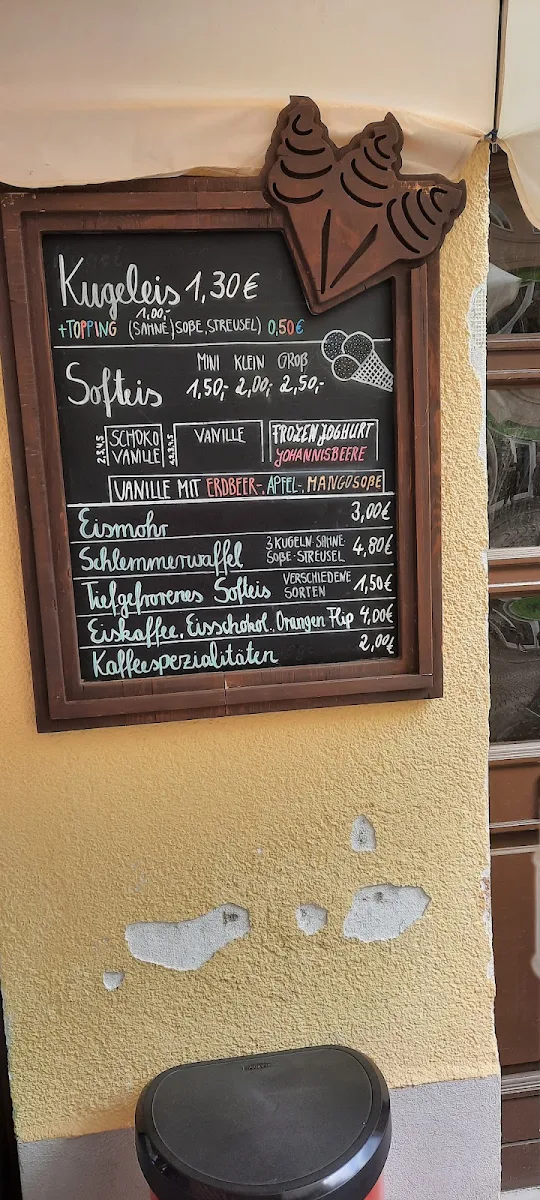 Kugeleis 1,30€
1,00,-
+TOPPING (SAHNE) SOßE, STREUSEL) 0,50€
MINI KLEIN GROß
Softeis 1,50,- 2,00,- 2,50,-
SCHOKO VANILLE
VANILLE
FROZEN JOGHURT
JOHANNISBEERE
VANILLE MIT ERDBEER-, APFEL-, MANGOSOßE
Eismohr 3,00€
Schlemmerwaffel 3 KUGELN·SAHNE· SOßE·STREUSEL 4,80€
Tiefgefrorenes Softeis VERSCHIEDENE SORTEN 1,50€
Eiskaffee, Eisschokol., Orangen Flip 4,00€
Kaffeespezialitäten 2,00€